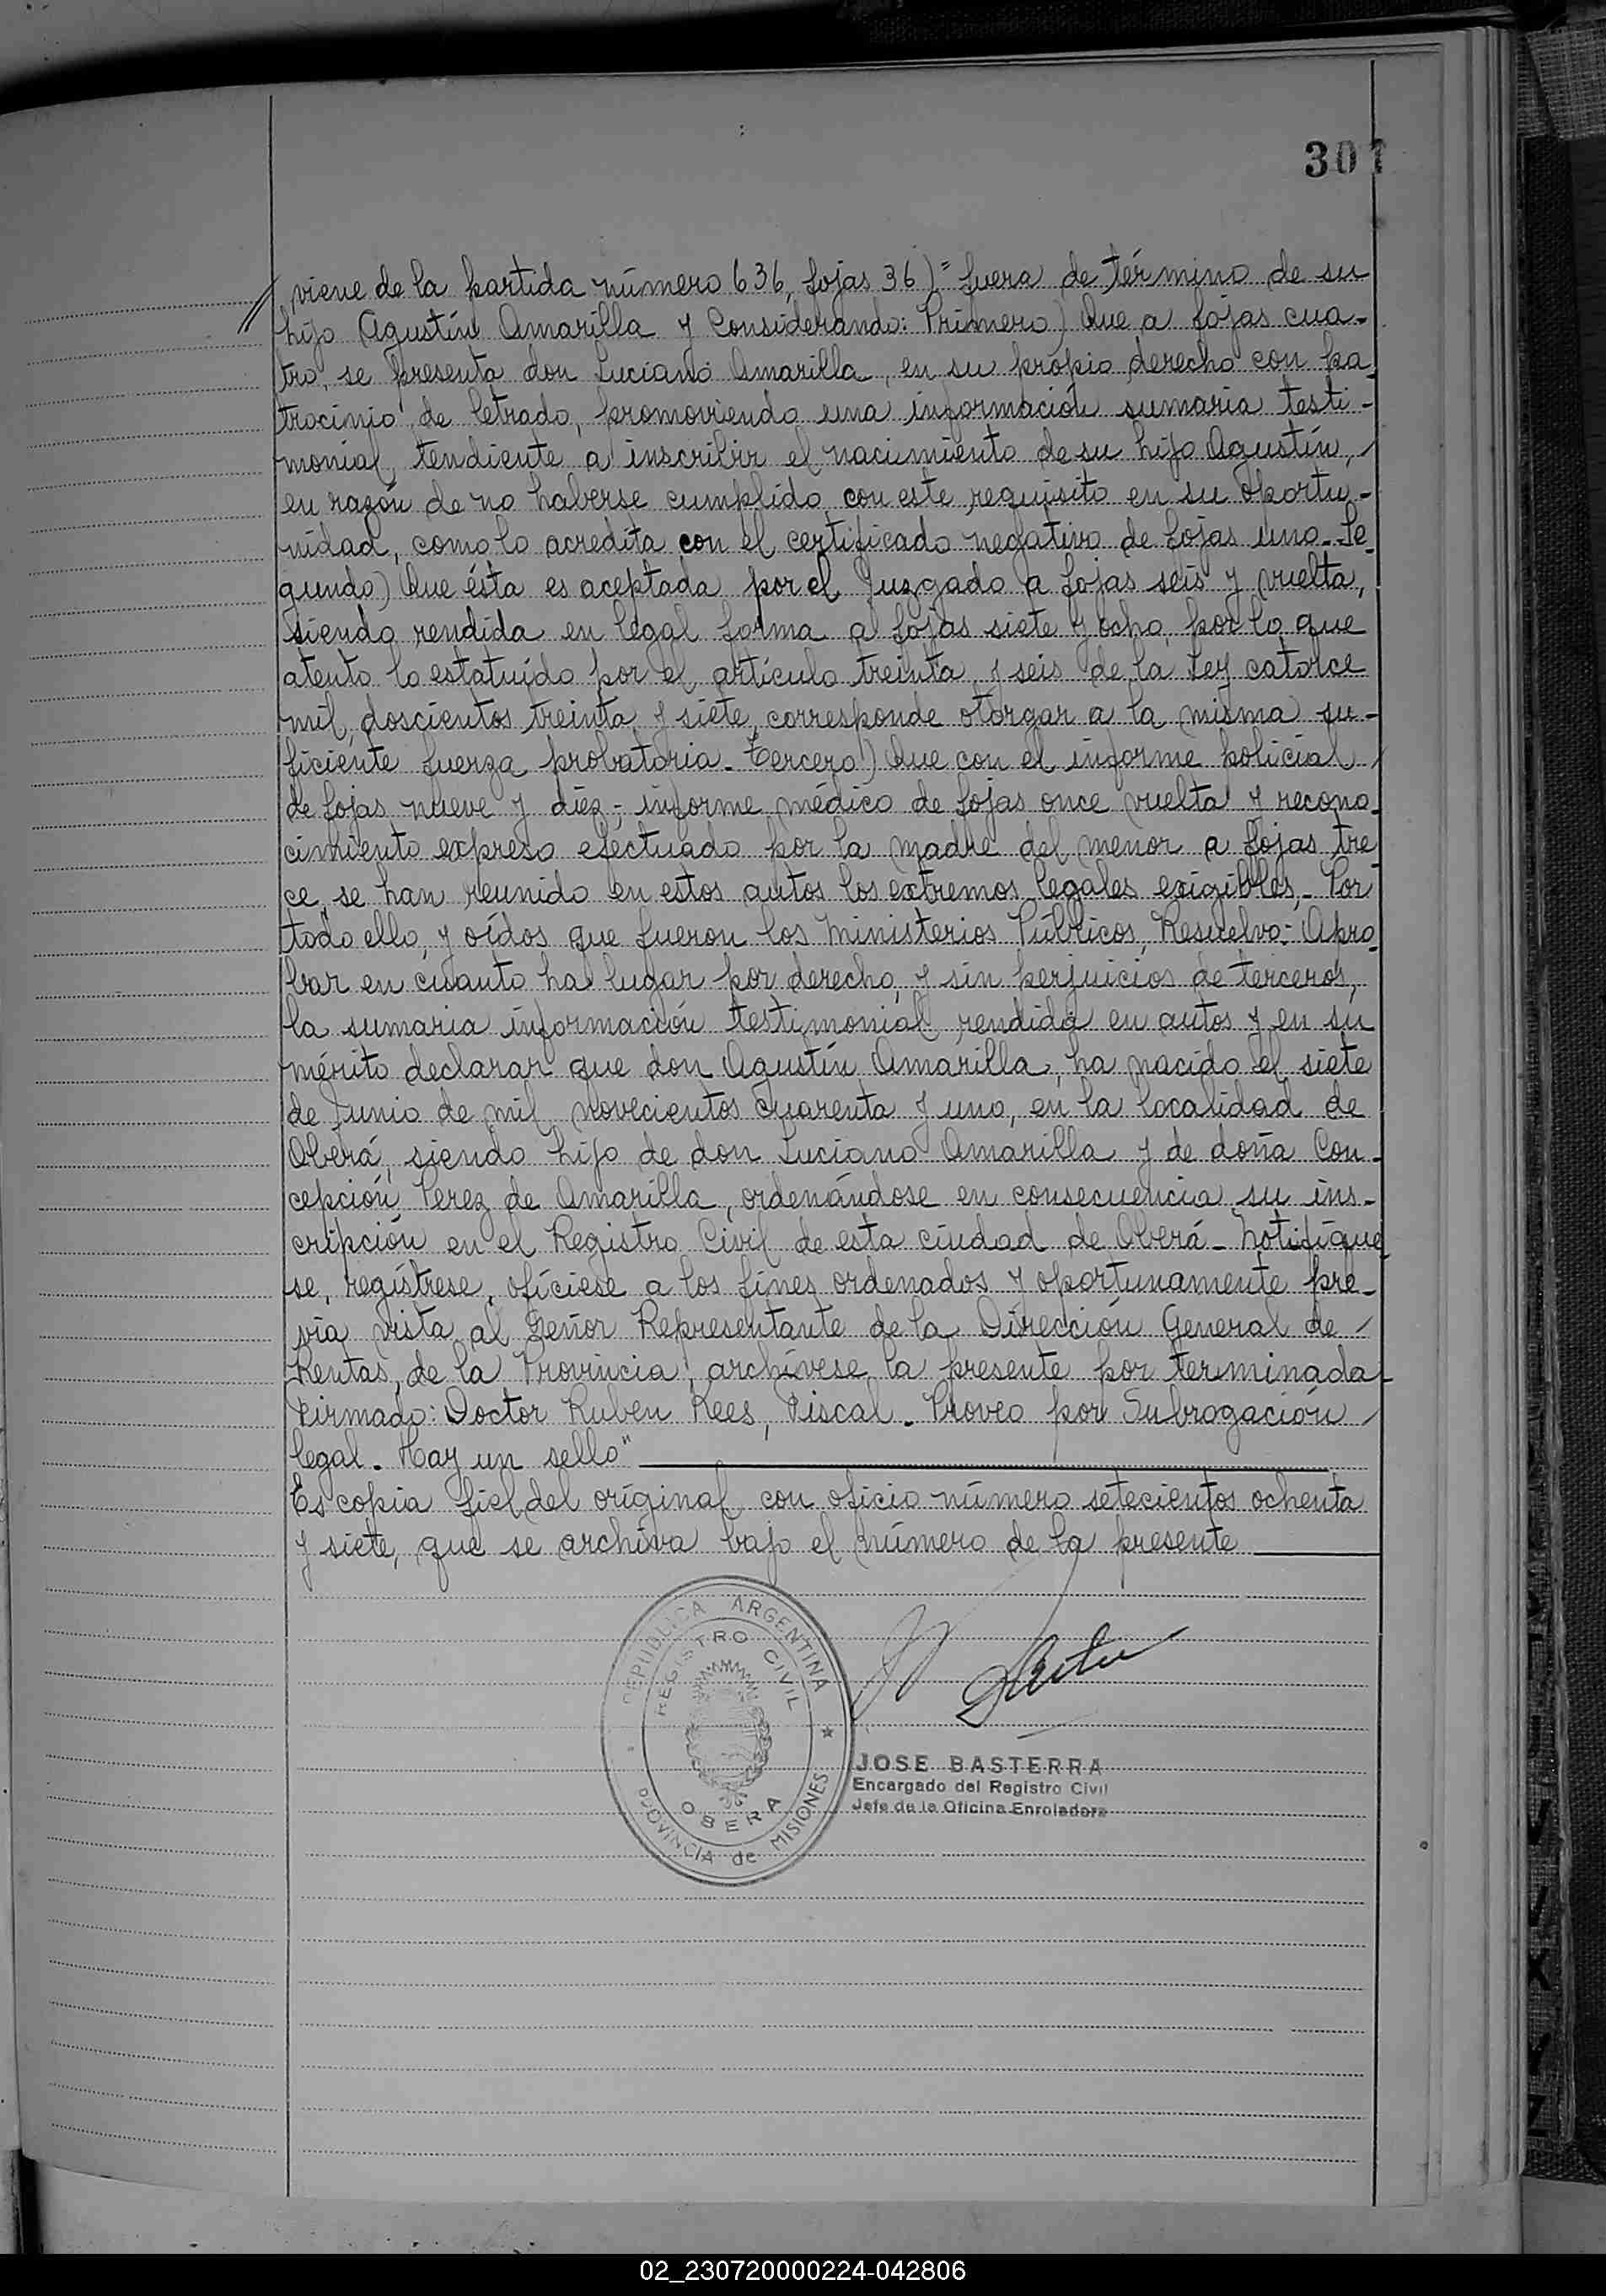 307
viene de la partida número 636, fojas 36)= fuera de término de su
hijo Agustín Amarilla y Considerando: Primero) Que a fojas cua-
tro, se presenta don Luciano Amarilla, en su propio derecho con pa-
trocinio de letrado, promoviendo una información sumaria testi-
monial, tendiente a inscribir el nacimiento de su hijo Agustín,
en razón de no haberse cumplido con este requisito en su oportu-
nidad, como lo acredita con el certificado negativo de fojas uno. Se-
gundo) Que ésta es aceptada por el Juzgado a fojas seis y vuelta,
siendo rendida en legal forma a fojas siete y ocho, por lo que
atento lo estatuído por el artículo treinta y seis de la Ley catorce
mil, doscientos treinta y siete, corresponde otorgar a la misma su-
ficiente fuerza probatoria. Tercero) Que con el informe policial
de fojas nueve y diez; informe médico de fojas once vuelta y recono-
cimiento expreso efectuado por la madre del menor a fojas tre
ce, se han reunido en estos autos los extremos legales exigibles,- Por
todo ello, y oídos que fueron los Ministerios Públicos, Resuelvo: Apro-
bar en cuanto ha lugar por derecho, y sin perjuicios de terceros,
la sumaria información testimonial, rendida en autos y en su
mérito declarar que don Agustín Amarilla, ha nacido el siete
de Junio de mil novecientos cuarenta y uno, en la localidad de
Oberá, siendo hijo de don Luciano Amarilla y de doña Con-
cepción Perez de Amarilla, ordenándose en consecuencia su ins-
cripción en el Registro Civil de esta ciudad de Oberá - Notifíque
se, regístrese, ofíciese a los fines ordenados y oportunamente pre-
via vista al Señor Representante de la Dirección General de
Rentas, de la Provincia, archívese la presente por terminada
Firmado: Doctor Ruben Rees, Fiscal. Proveo por Subrogación
legal. Hay un sello"
Es copia fiel del original con oficio número setecientos ochenta
y siete, que se archiva bajo el número de la presente
REPUBLICA ARGENTINA
REGISTRO CIVIL
OBERA
PROVINCIA de MISIONES
JOSE BASTERRA
Encargado del Registro Civil
Jefe de la Oficina Enroladora
02_230720000224-042806